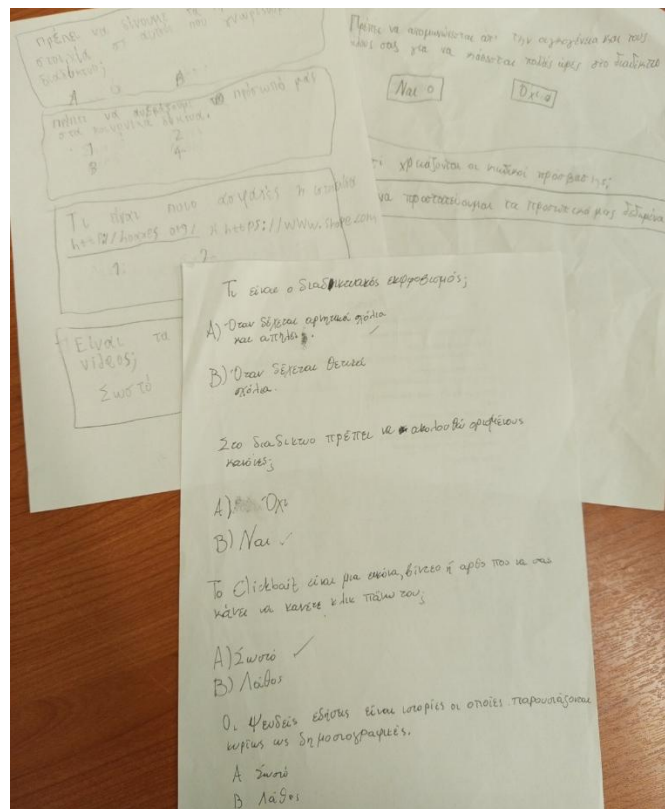 πρέπει να δίνουμε τα
στοιχεία σε αυτούς που γνωρίζουμε
A B
στα κοινωνικά δίκτυα.
1 2
3 4
Τι είναι ποιο ασφαλές η ιστοσελίδα
ή https://www.
1. 2.
Είναι τα
videos;
Σωστό
Πρέπει να απομονώνεσαι απ' την οικογένεια και τους
φίλους σας για να κάθεσαι πολλές ώρες στο διαδίκτυο
Ναι Όχι
χρειάζονται οι κωδικοί πρόσβασης;
να προστατεύουμαι τα προσωπικά μας δεδομένα
Τι είναι ο διαδικτυακός εκφοβισμός;
A) Όταν δέχεται αρνητικά σχόλια
και απειλές.
B) Όταν δέχεται θετικά
σχόλια.
Στο διαδίκτυο πρέπει να ακολουθώ ορισμένους
κανόνες;
A) Όχι
B) Ναι ✓
Το Clickbait είναι μια εικόνα, βίντεο ή αρθο που να σας
κάνει να κανετε κλικ πάνω του;
A) Σωστό ✓
B) Λάθος
Οι ψευδείς ειδήσεις είναι ιστορίες οι οποίες παρουσιάζονται
κυρίως ως δημοσιογραφικές.
A Σωστό
B Λάθος